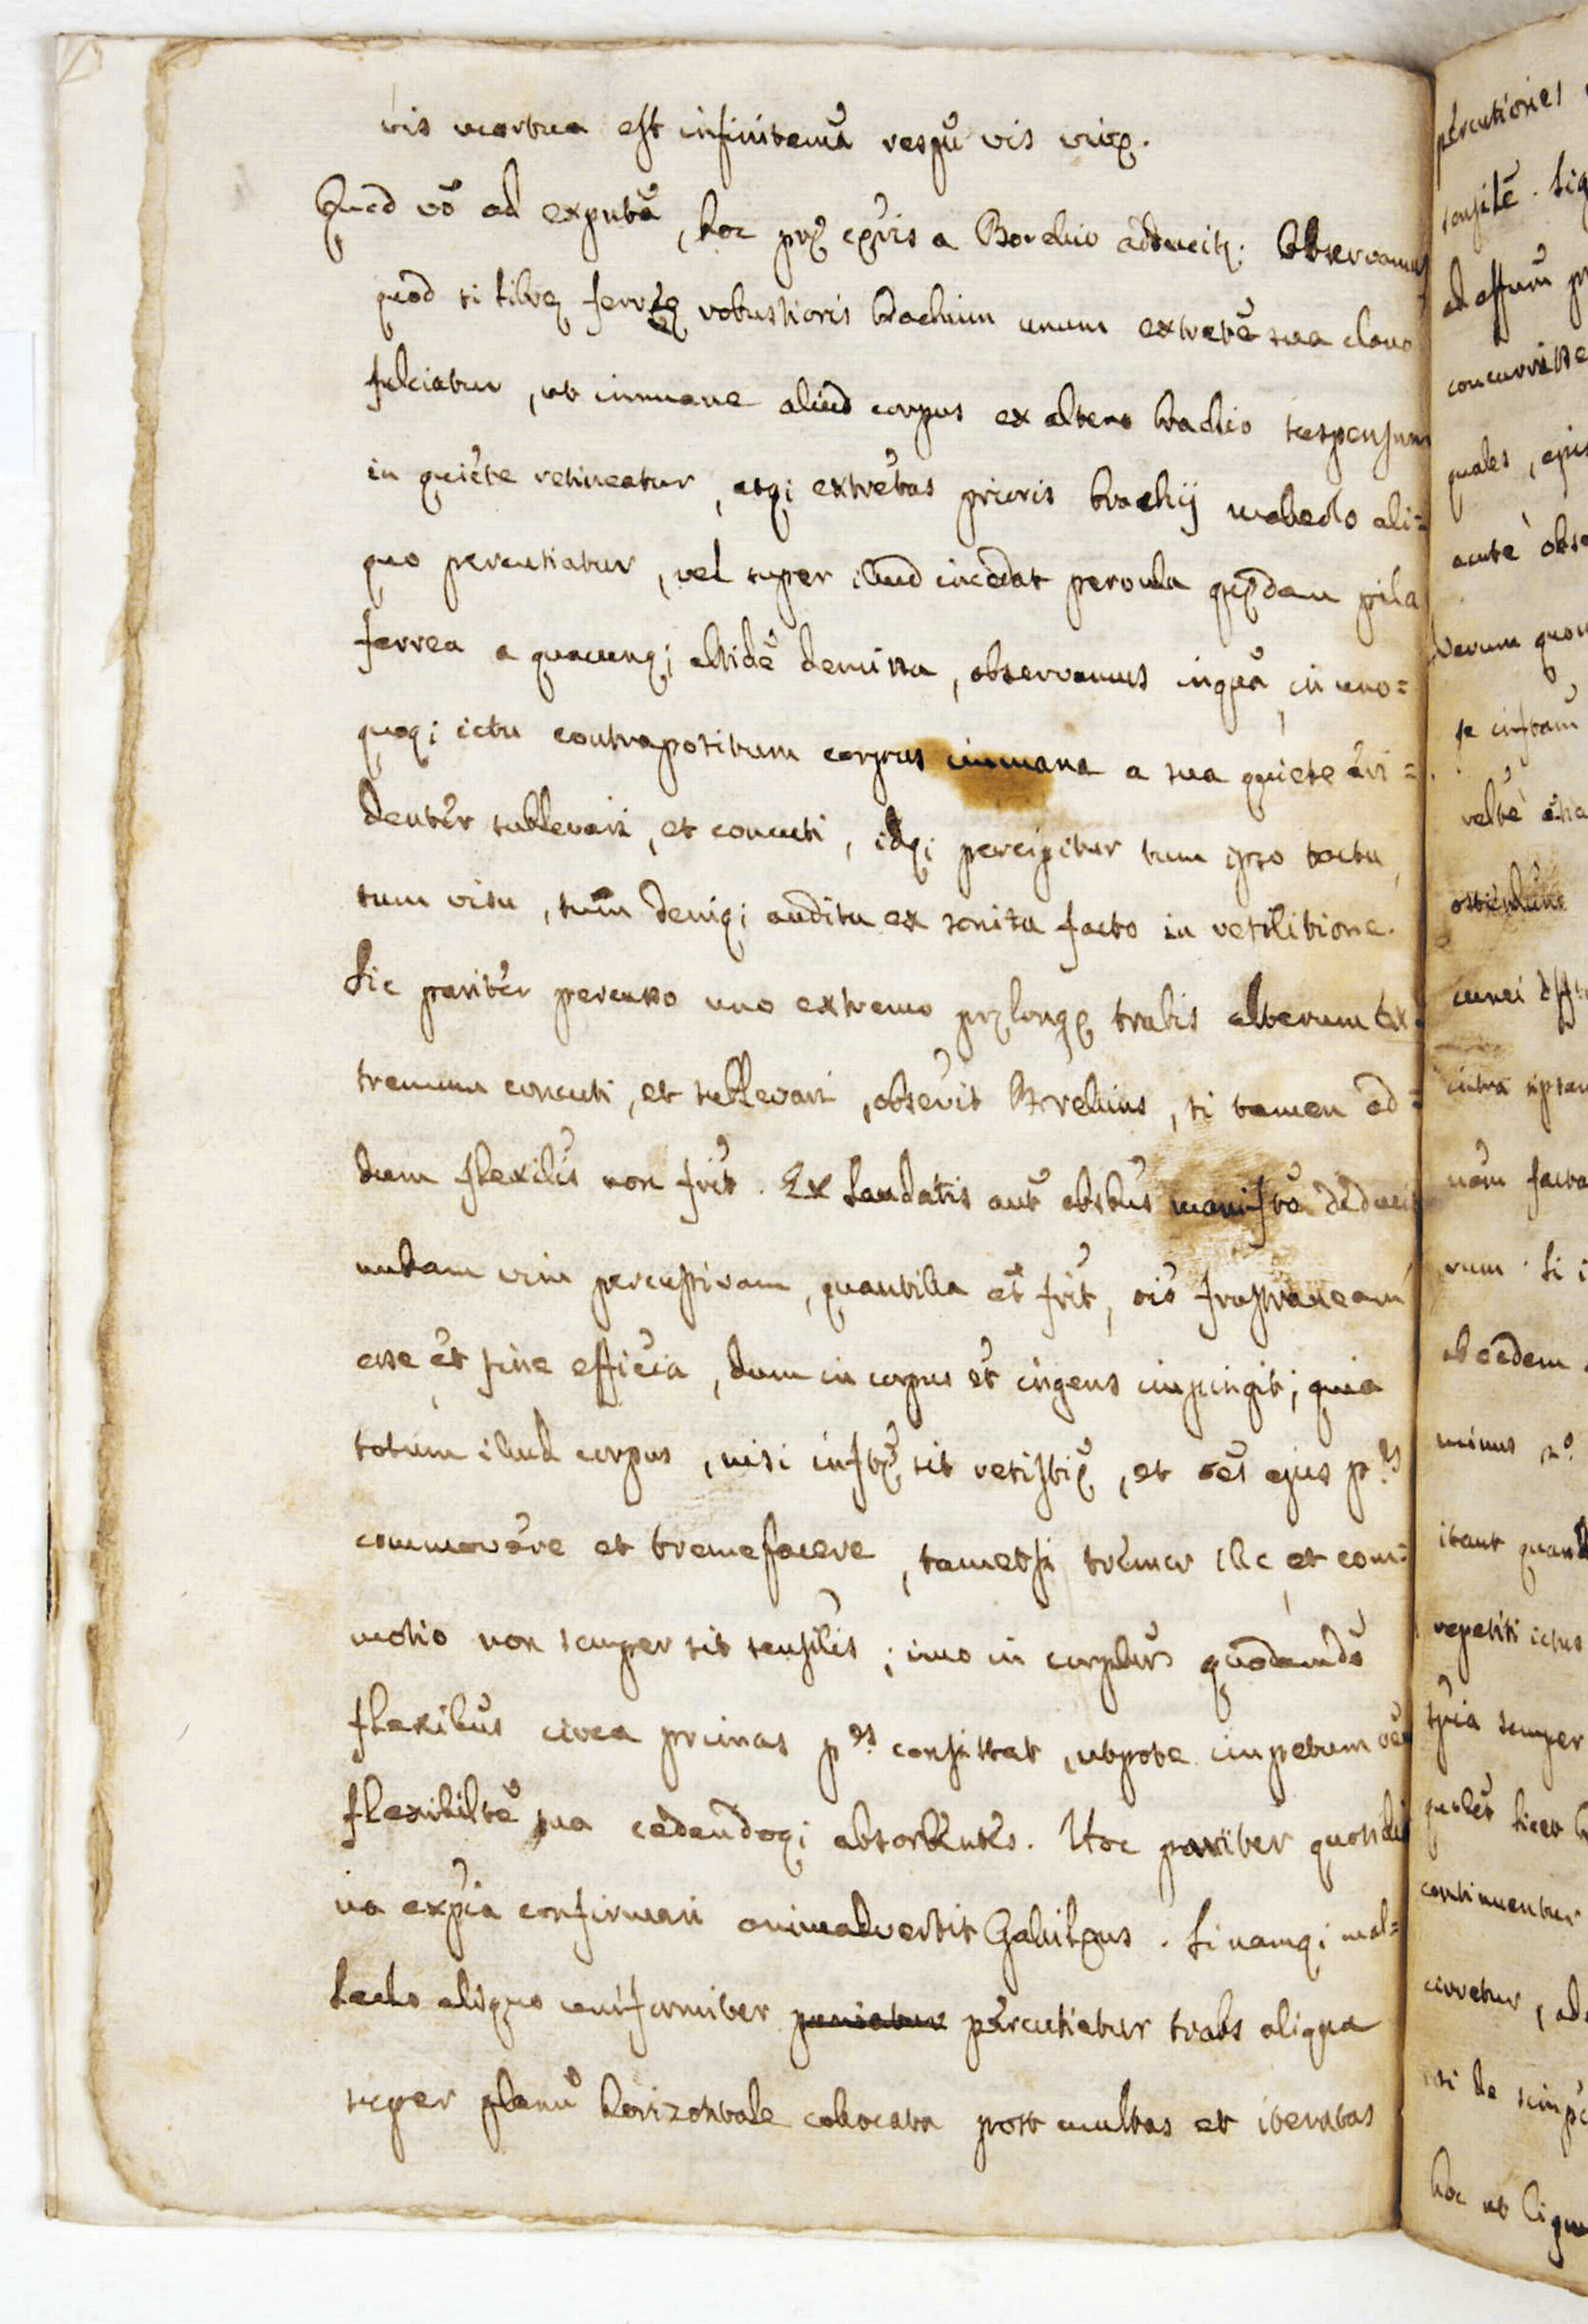 vis mortua est infinitemã respũ vis vivę.
Quod võ ad exputã, hoc prę cęris a Borelio adducitę: Observamus
quod si librę ferręę robustioris brachium unum extretẽ sua clavo
fulciatur, ut immane aliud corpus ex altero brachio suspensum
in quiete retineatur, atq; extretas prioris brachij maleolo ali=
quo percutiatur, vel super illud incidat parvula quędam pila
ferrea a quacunq; altidẽ demissa, observamus inquã, in uno=
quoq; ictu contrapositum corpus immane a sua quiete evi=
denter sublevari, et concuti, idq; percipitur tum ipso tactu,
tum visu, tum deniq; auditu ex sonitu facto in resilitione.
Sic pariter percusso uno extremo pręlongę trabis alterum ex=
tremum concuti, et sublevari, observit Borelius, si tamen ad=
dum flexilis non frit. Ex laudatis aut obsbus manifstõ deduci
nullam vim percussivam, quantilla et frit, ois frustraneam
esse et sine efficia, dum in corpus et ingens impingit; quia
totum illud corpus, nisi instę sit resistię, et oẽs ejus p.es
commovere et tremefacere, tametsi tremor ille et com=
motio non semper sit sensilis; imo in corpbus quodamdõ
flexibus circa primas p.es consistat, utpote impetum
flexibiltẽ sua cedendoq; absorbentes. Hoc pariter quondã
na expia confirmari animadvertit Galilęus. Si namq; mal=
leolo aliquo uniformiter percutiatur trabs aliqua
super planũ horizontale collocata post multas et iteratas
percutiones
sensile. Sig
ad effum pr
concurrisse
quales, ejus
acutè obse
Verum quon
se instam
ostendunt
cunei
intra ipsam
nam facta
rum. Si i
ab eadem
minus
itaut quand
repetiti ictus
semper
licet
continuentur
curretur, ad
hoc ut lignu